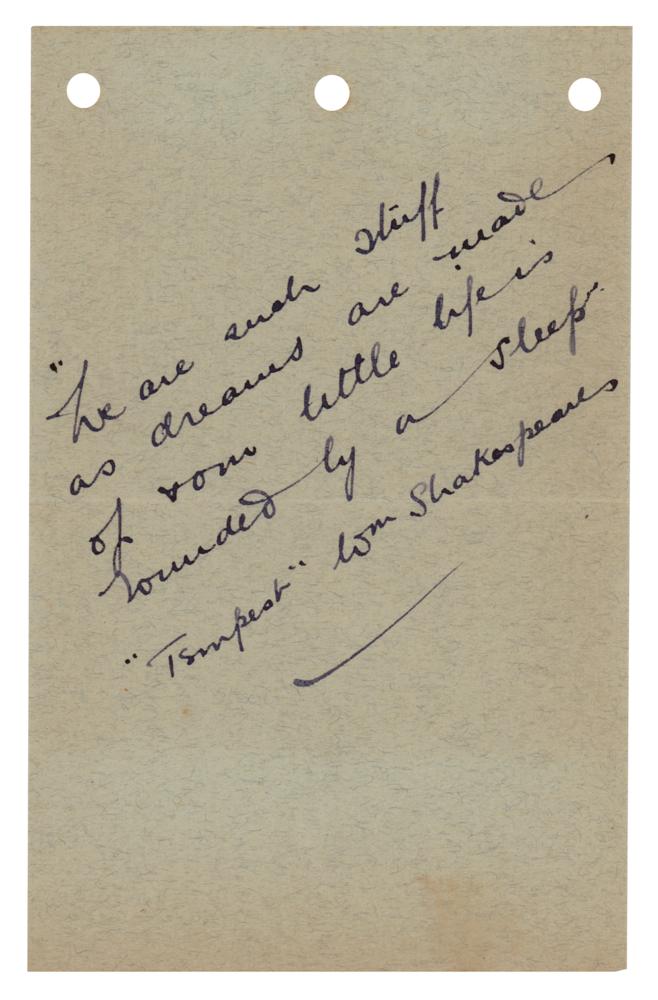 "We are such stuff
as dreams are made
of & our little life is
rounded by a sleep".
"Tempest" Wm Shakespeare